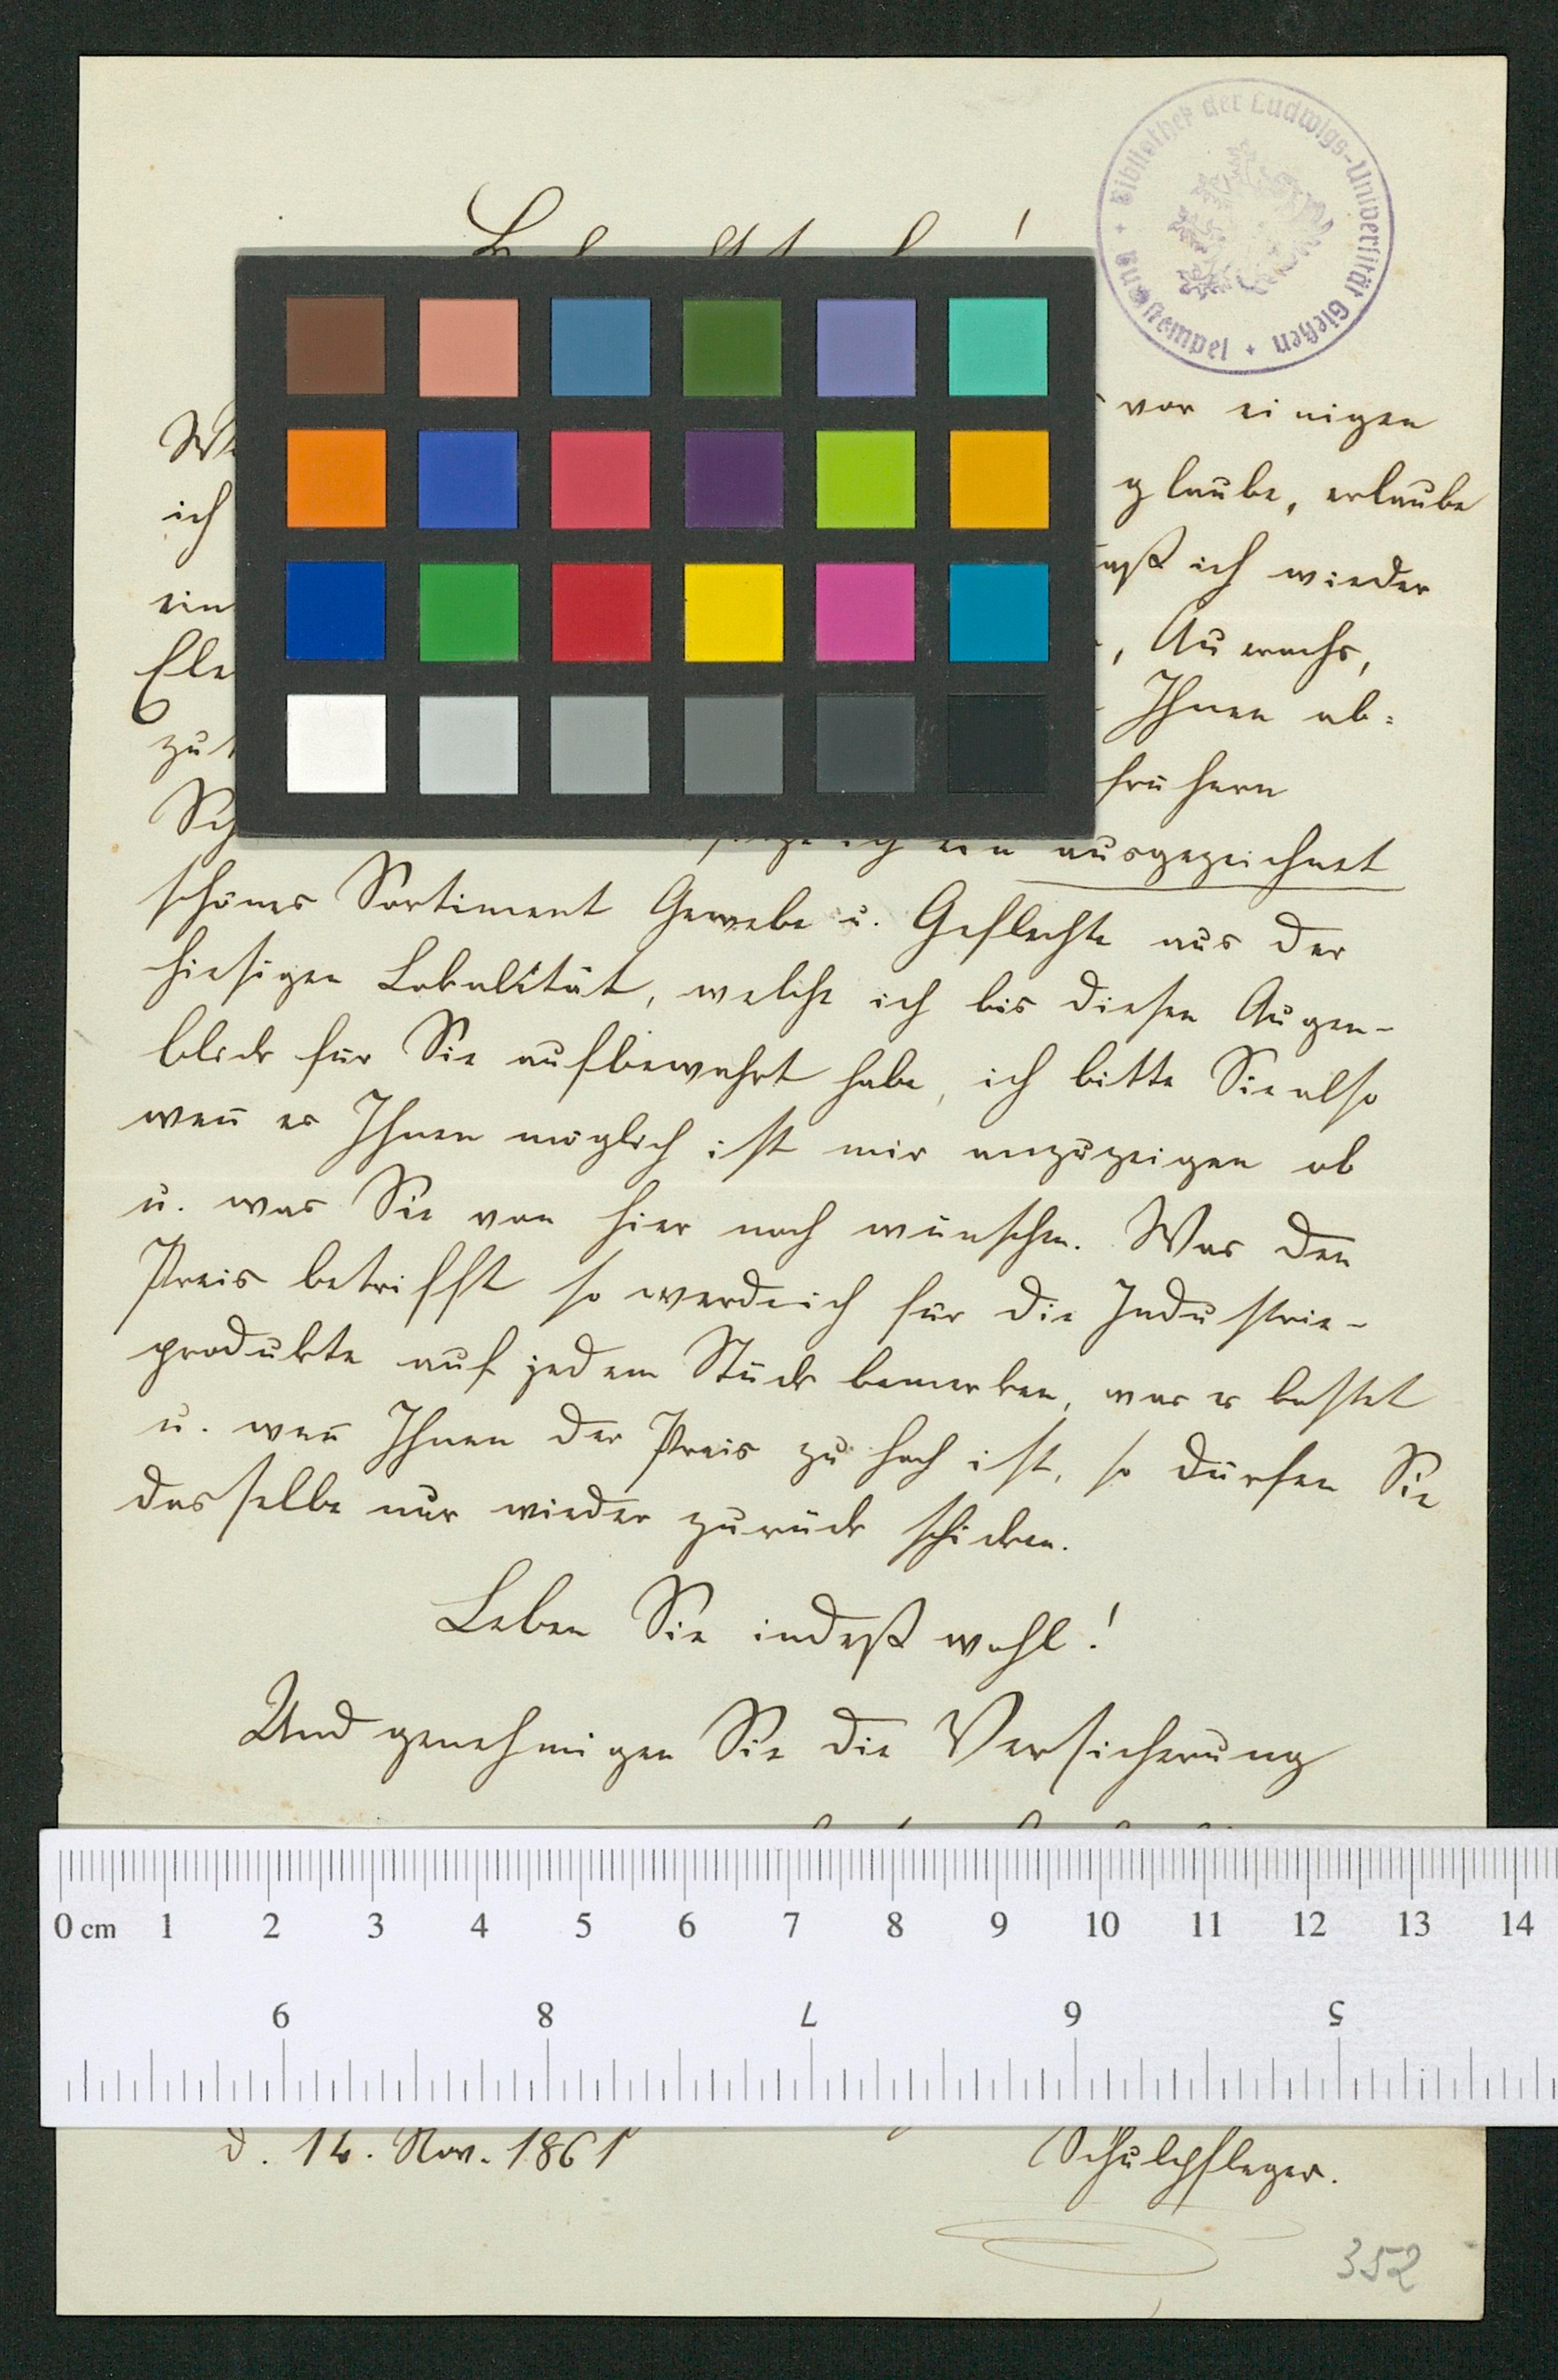 Bibliothek der Ludwigs-Universität Gießen
Buchstempel
vor einigen
ich glaube, erlaube
ich wieder
Auerochs,
Ihnen ab=
frühern
ein ausgezeichnet
schönes Sortiment Gewebe u. Geflechte aus der
hiesigen Lokalität, welche ich bis diesen Augen-
blick für Sie aufbewahrt habe, ich bitte Sie also
wen̄ es Ihnen möglich ist mir anzuzeigen ob
u. was Sie von hier noch wünschen. Was den
Preis betrifft so werde ich für die Industrie-
produkte auf jedem Stück bemerken, was es kostet
u. wen̄ Ihnen der Preis zu hoch ist, so dürfen Sie
dasselbe nur wieder zurück schicken.
Leben Sie indeß wohl!
Und genehmigen Sie die Versicherung
0 cm 1 2 3 4 5 6 7 8 9 10 11 12 13 14
9 8 7 6 5
d. 14. Nov. 1861
Schulpfleger.
352